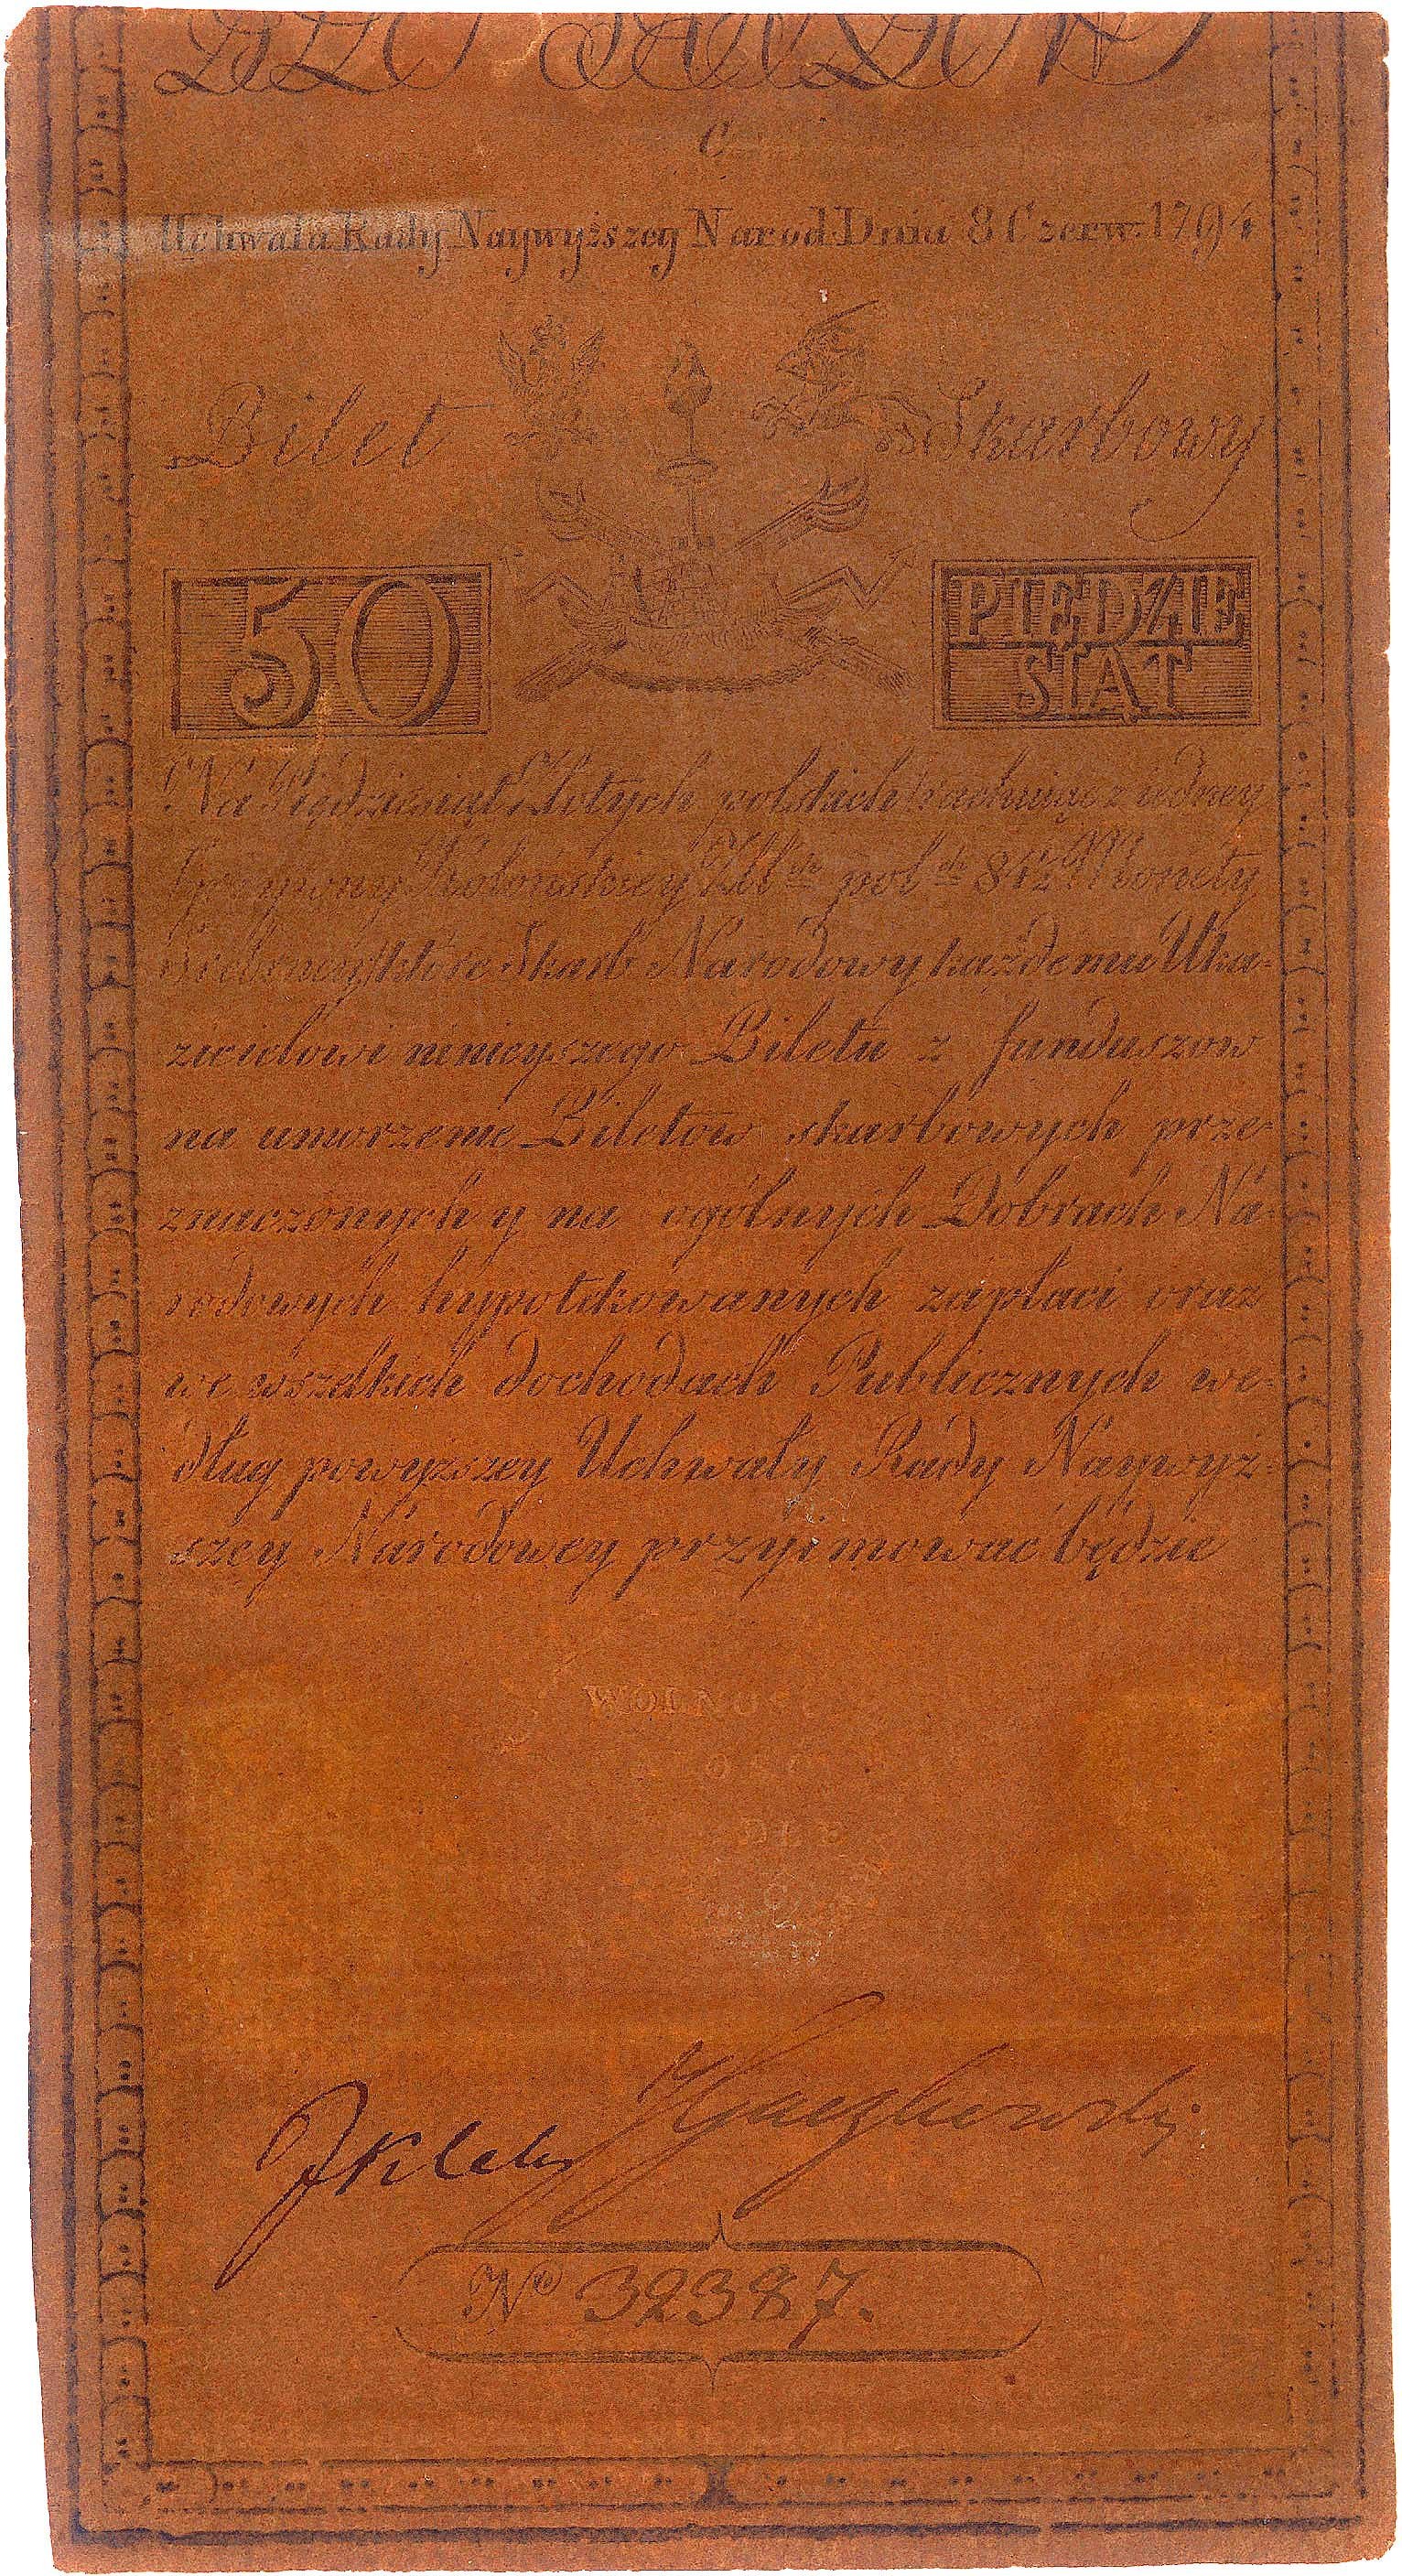 C
Uchwała Rady Naywyższey Narod: Dnia 8 Czerw: 1794
Bilet Skarbowy
50
PIĘDZIE
SIĄT
Na Piędziesiąt Złotych polskich rachuiąc z iedney
Grzywny Kolońskiey Złł. ch pol. ch 84½ Monety
Srebrney, które Skarb Narodowy każdemu Uka-
zicielowi ninieyszego Biletu z funduszow
na umorzenie Biletow skarbowych prze-
znaczonych y na ogólnych Dobrach Na-
rodowych hypotekowanych zapłaci oraz
we wszelkich dochodach Publicznych we-
dług powyższey Uchwały Rady Naywyż-
szey Narodowey przyimować będzie
No 32387.